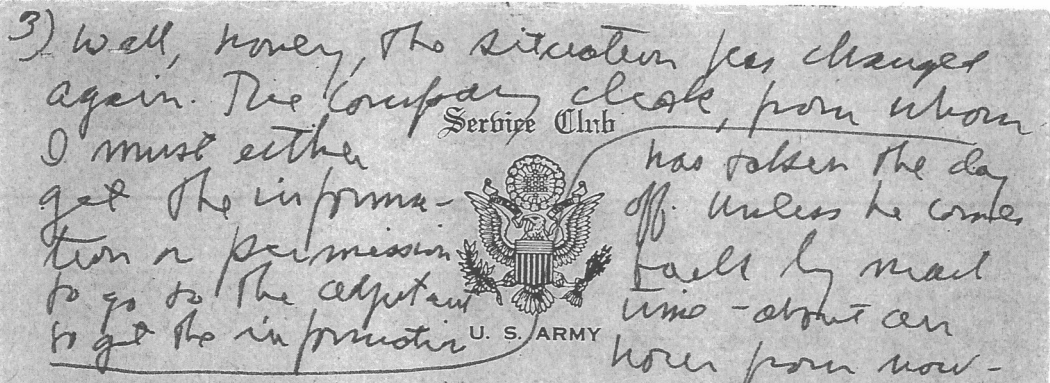 3) Well, honey, the situation has changed
again. The company clerk, from whom
Service Club
I must either
get the informa-
tion or permission
to go to the adjutant
to get the information
has taken the day
off. Unless he comes
back by mail
time - about an
hour from now -
U. S. ARMY